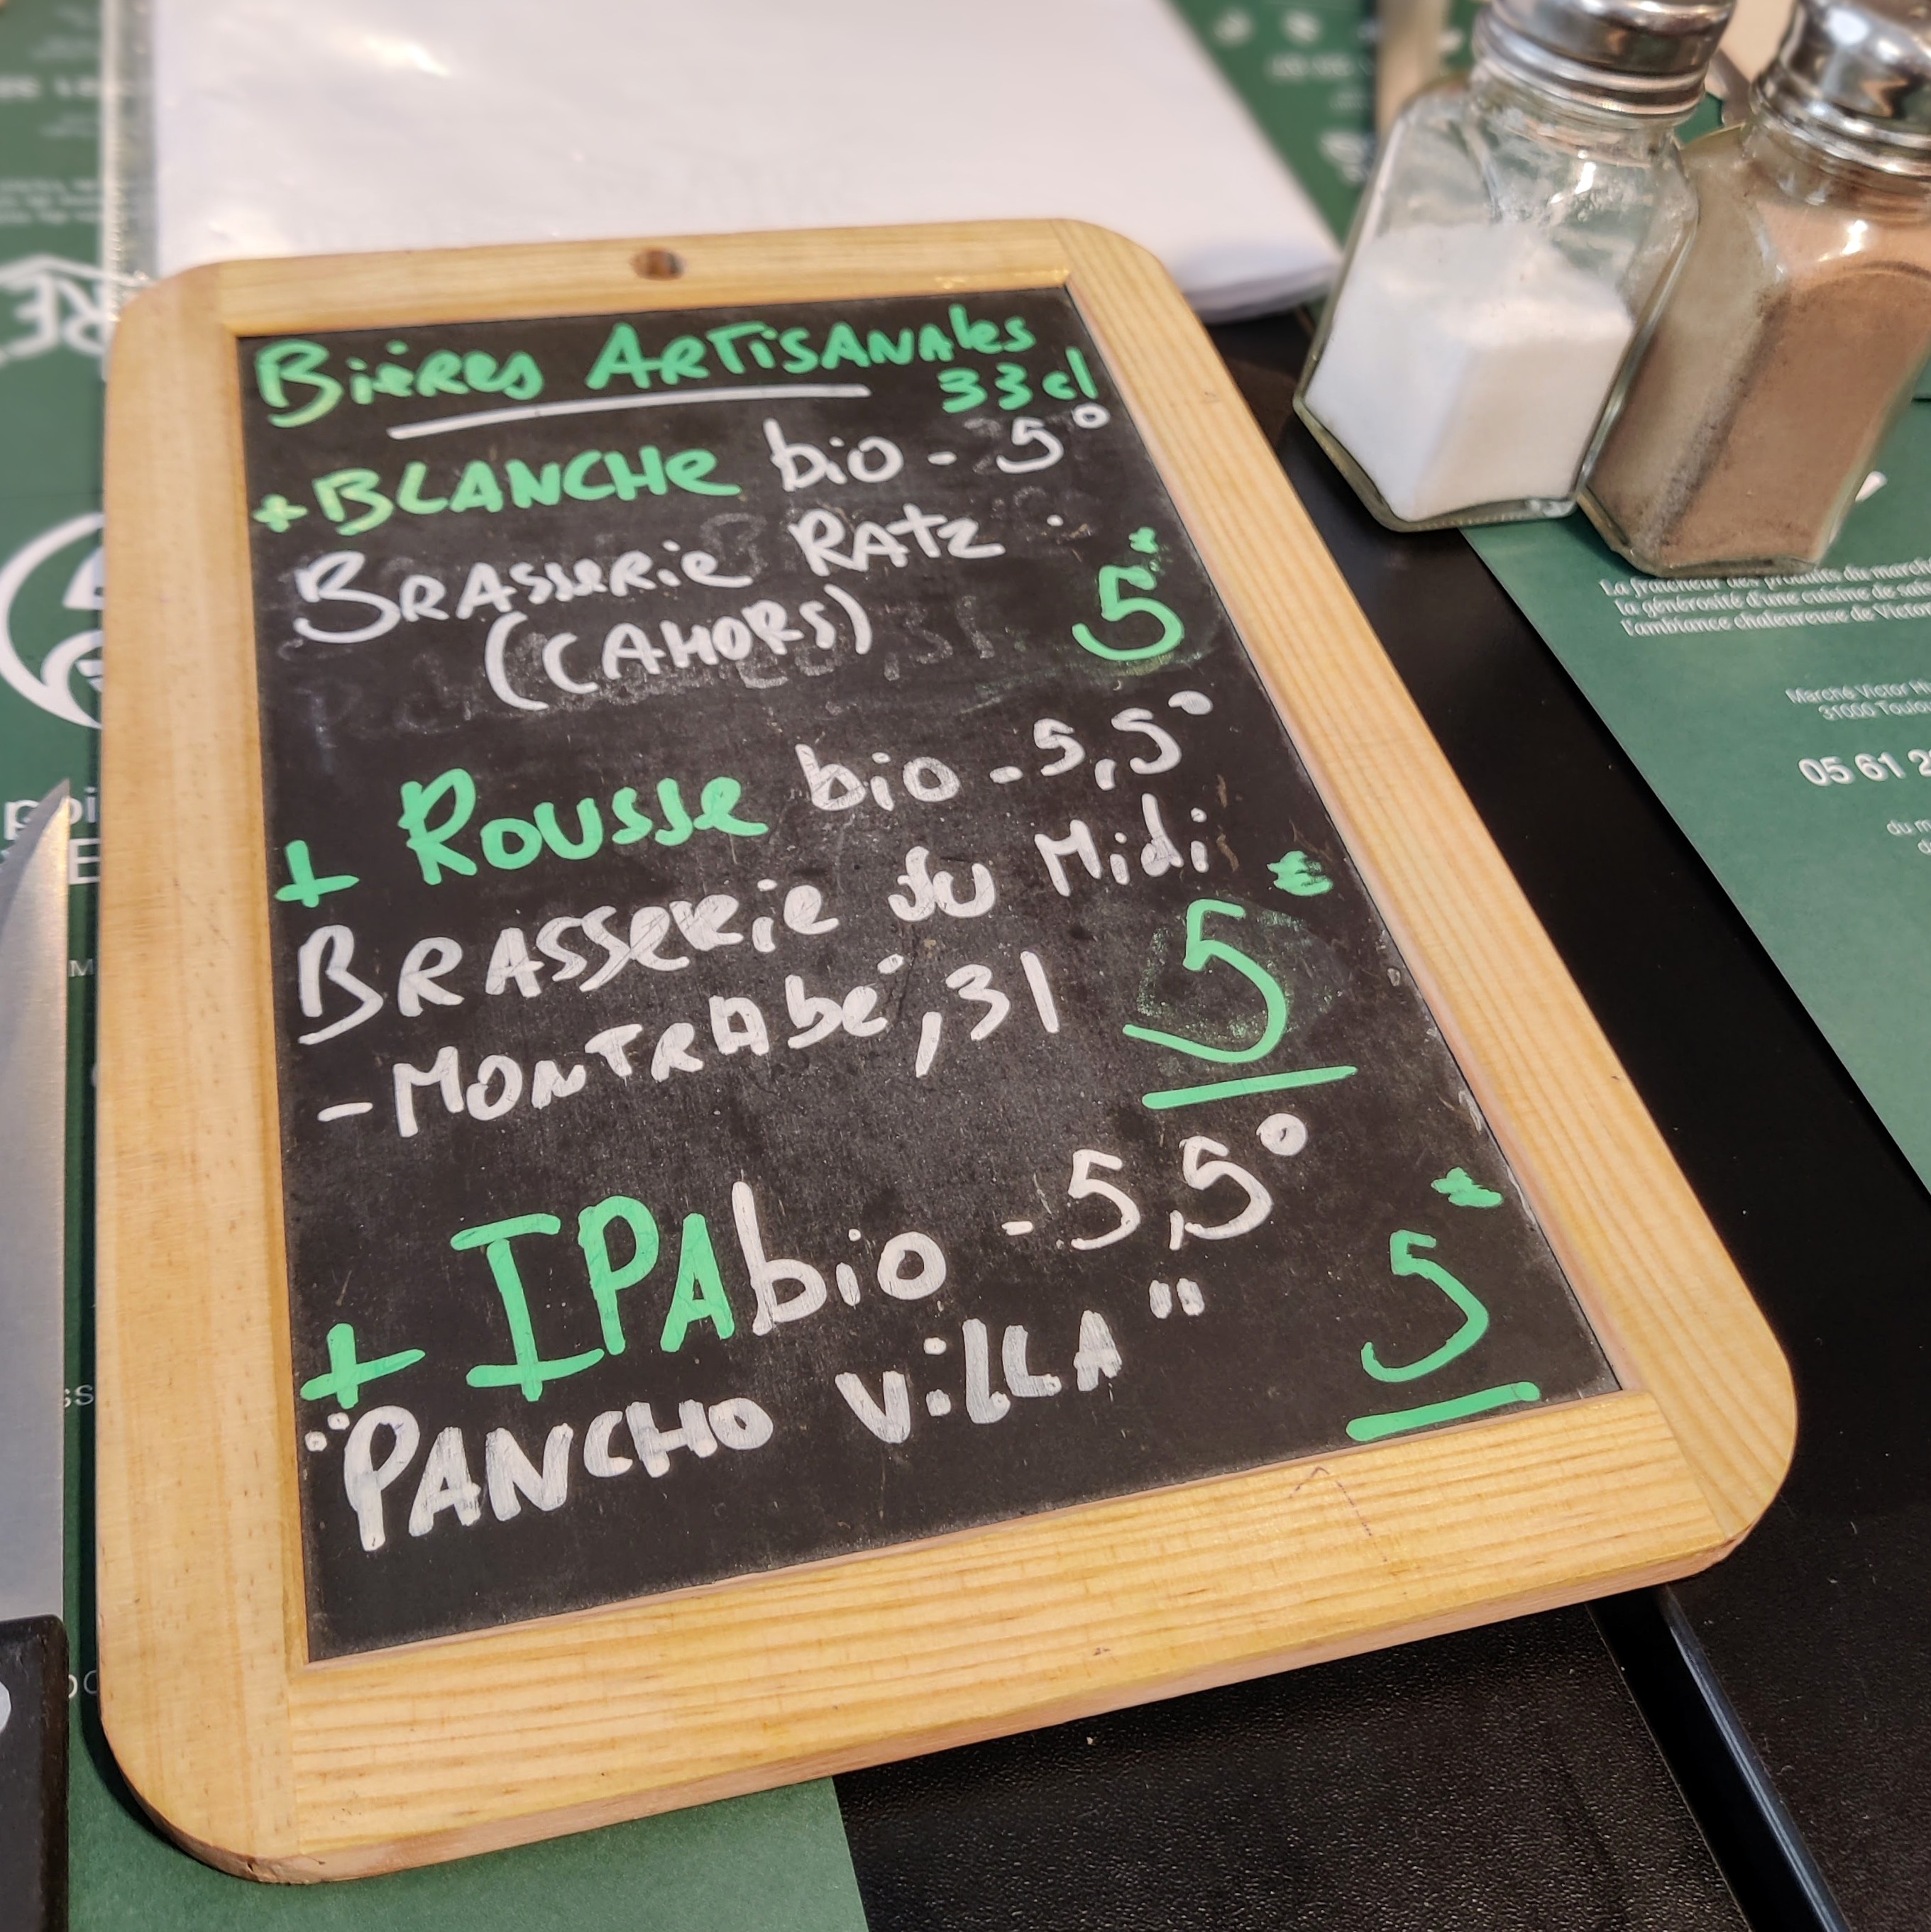 Bières Artisanales
33cl
+ Blanche bio - 5°
Brasserie Ratz
(Cahors)
5€
+ Rousse bio - 5,5°
Brasserie du Midi
- Montrabé, 31
5€
+ IPA bio - 5,5°
"Pancho Villa"
5€
La fraîcheur des produits du
la générosité d'une cuisine de
l'ambiance chaleureuse de
Marché Victor
31000
05 61